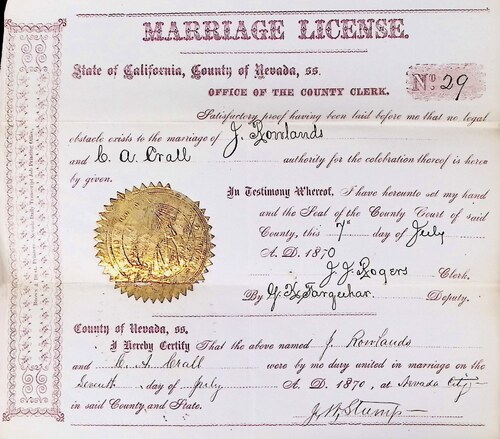 MARRIAGE LICENSE.
State of California, County of Nevada, ss.
OFFICE OF THE COUNTY CLERK.
No. 29
Satisfactory proof having been laid before me that no legal
obstacle exists to the marriage of J. Rowlands
and C. A. Crall authority for the celebration thereof is here
by given.
In Testimony Whereof, I have hereunto set my hand
and the Seal of the County Court of said
County, this 7th day of July
A. D. 1870
J. J. Rogers Clerk.
By Farquhar. Deputy.
County of Nevada, ss.
I Hereby Certify That the above named J. Rowlands
and C. A. Crall were by me duly united in marriage on the
Seventh day of July A. D. 1870, at Nevada City
in said County and State.
J. W. Stump